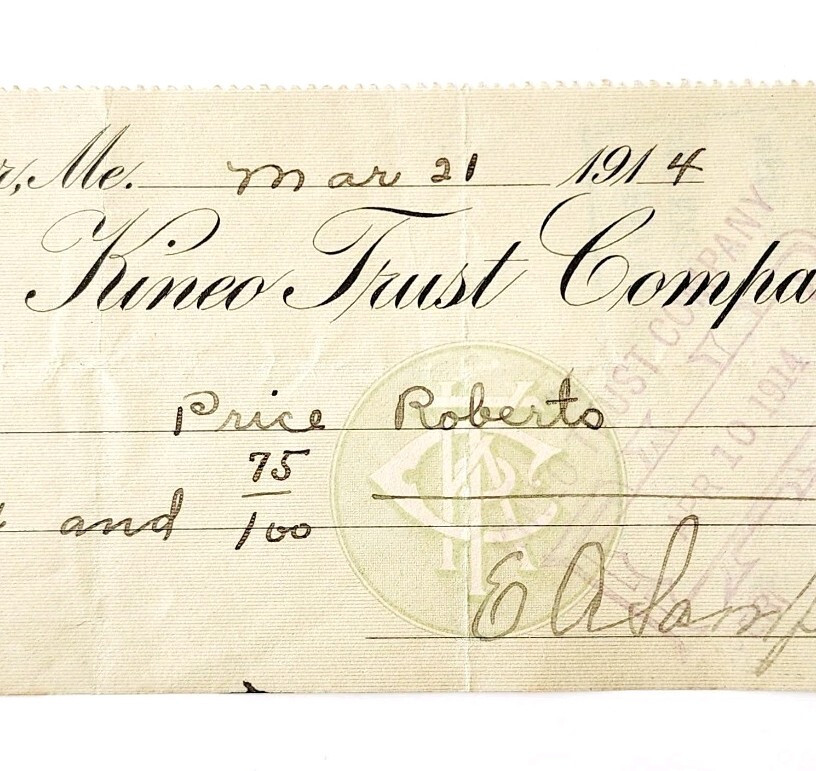 r, Me. Mar 21 1914
Kineo Trust Compa
Price Roberto
and 75/100
E A Samp
TRUST COMPANY
APR 10 1914